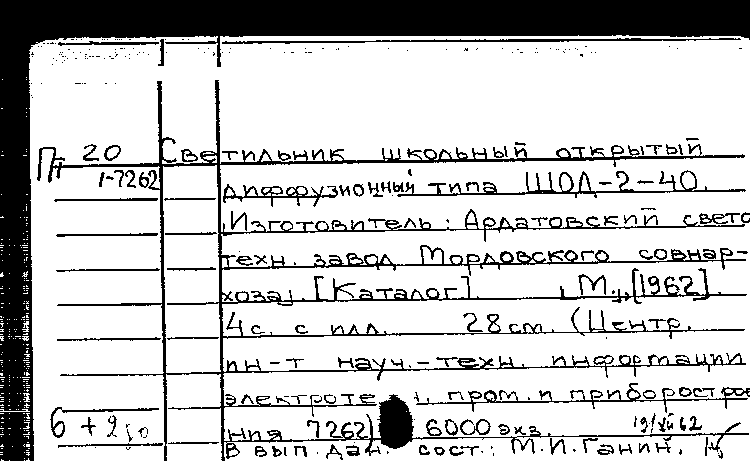 Пт 20 Светильник школьный открытый
1-7262 диффузионный типа ШОД-2-40.
Изготовитель: Ардатовский свето
техн. завод Мордовского совнар-
хоза. [Каталог]. М., [1962].
4с. с илл. 28 см. (Центр.
ин-т науч.-техн. информации
электроте пром. и приборострое
6 + 2 ния 7262) 6000 экз.
В вып. дан. сост.: М.И.Ганин.